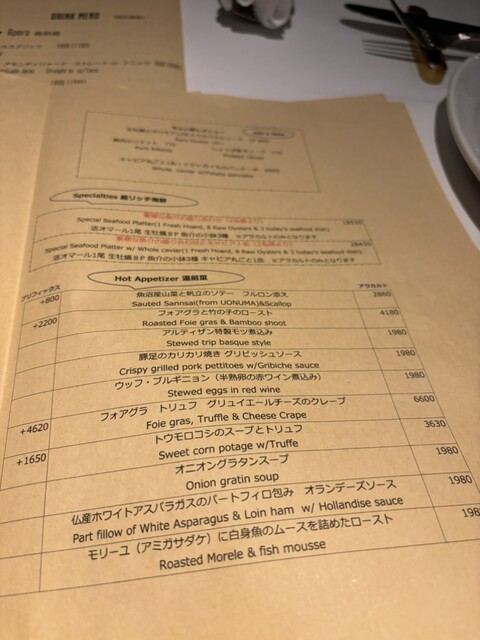 DRINK MENU
Apero
Specialties 超リッチ海鮮
Special Seafood Platter(1 Fresh Hoard, 8 Raw Oysters & 3 today's small dish)
活オマール1尾 生牡蠣8P 魚介の小鉢3種 ※アラカルトのみとなります
Special Seafood Platter w/ Whole caviar(1 Fresh Hoard, 8 Raw Oysters & 3 today's small dish)
活オマール1尾 生牡蠣8P 魚介の小鉢3種 キャビア丸ごと1缶 ※アラカルトのみとなります
Hot Appetizer 温前菜
プリフィックス アラカルト
+800 魚沼産山菜と帆立のソテー フルロン添え 2860
Sauted Sannsai(from UONUMA)&Scallop
+2200 フォアグラと竹の子のロースト 4180
Roasted Foie gras & Bamboo shoot
アルティザン特製モツ煮込み 1980
Stewed trip basque style
豚足のカリカリ焼き グリビッシュソース 1980
Crispy grilled pork pettitoes w/Gribiche sauce
ウッフ・ブルギニョン（半熟卵の赤ワイン煮込み） 1980
Stewed eggs in red wine
+4620 フォアグラ トリュフ グリュイエールチーズのクレープ 6600
Foie gras, Truffle & Cheese Crape
+1650 トウモロコシのスープとトリュフ 3630
Sweet corn potage w/Truffe
オニオングラタンスープ 1980
Onion gratin soup
仏産ホワイトアスパラガスのパートフィロ包み オランデーズソース 1980
Part fillow of White Asparagus & Loin ham w/ Hollandise sauce
モリーユ（アミガサダケ）に白身魚のムースを詰めたロースト 198
Roasted Morele & fish mousse